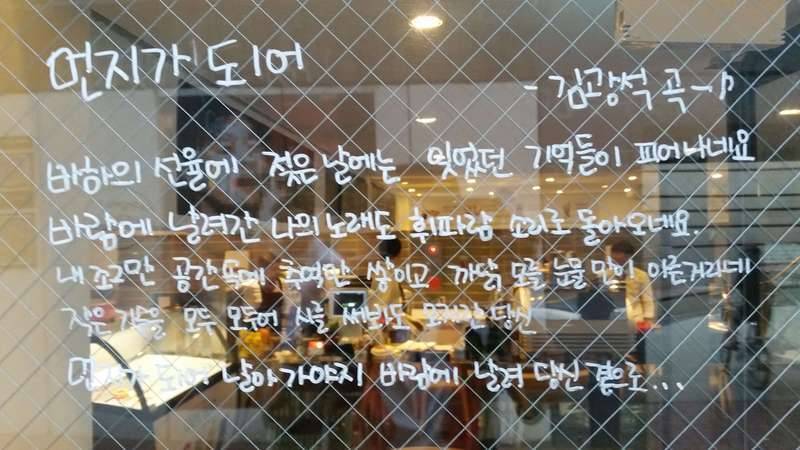 먼지가 되어
- 김광석 곡 -♪
바하의 선율에 젖은 날에는 잊었던 기억들이 피어나네요
바람에 날려간 나의 노래도 휘파람 소리로 돌아오네요.
내 조그만 공간 속에 추억만 쌓이고 까닭 모를 눈물 만이 아른거리네
작은 가슴을 모두 모두어 시를 써봐도 모자란 당신
먼지가 되어 날아가야지 바람에 날려 당신 곁으로...